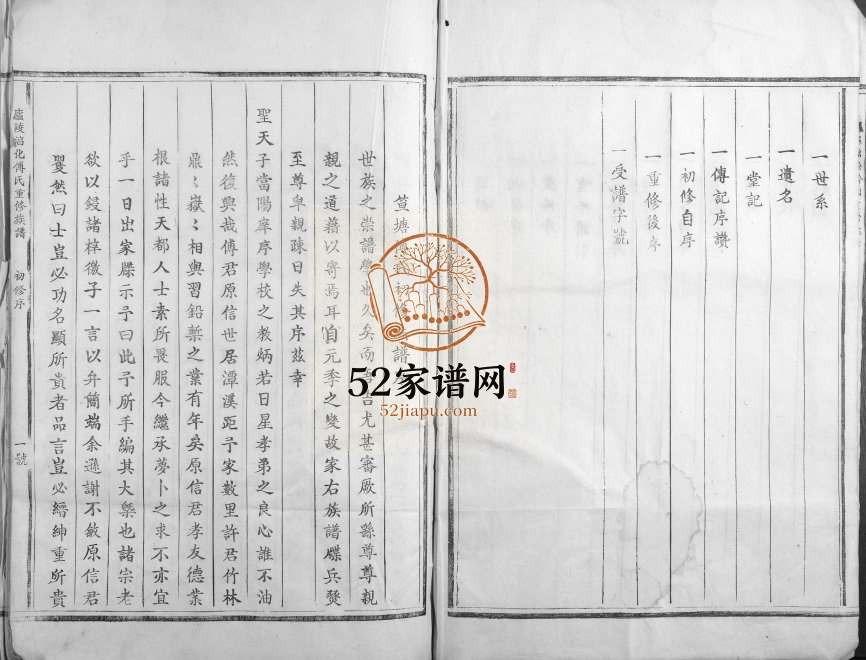 一世系
一遺名
一堂記
一傳記序讚
一初修自序
一重修後序
一受譜字號
笪塘 初修 譜
世族之崇譜 也久矣而 吉尤甚審厥所繇尊尊親
親之道藉以寄焉耳自元季之變故家右族譜牒兵燹
至尊卑親疎日失其序茲幸
聖天子當陽庠序學校之教炳若日星孝弟之良心誰不油
然復興哉傅君原信世居潭溪距予家數里許君竹林
鼎〻嶽〻相與習鉛槧之業有年矣原信君孝友德業
根諸性天都人士素所畏服今繼承夢卜之求不亦宜
乎一日出家牒示予曰此予所手編其大槩也諸宗老
欲以鋟諸梓徵予一言以弁簡端余遜謝不敏原信君
矍然曰士豈必功名顯所貴者品言豈必縉紳重所貴
廬陵 化傅氏重修族譜 初修序 一號
52家谱网
52jiapu.com